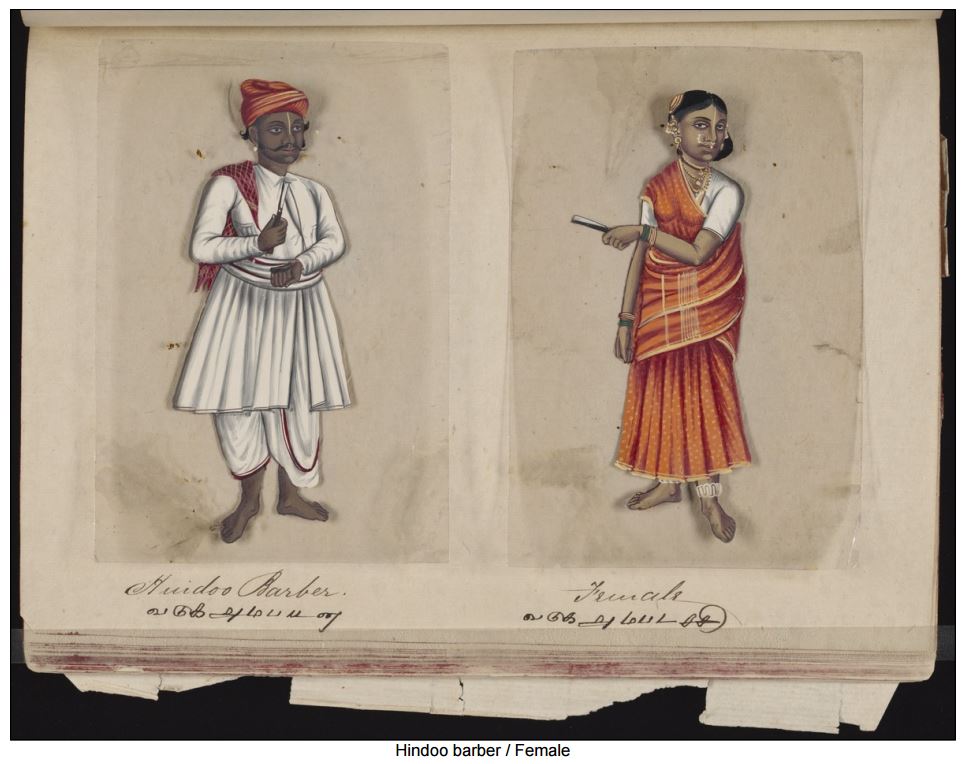 Hindoo Barber.
வடுக அமபடடன
Female
வடுக
Hindoo barber / Female